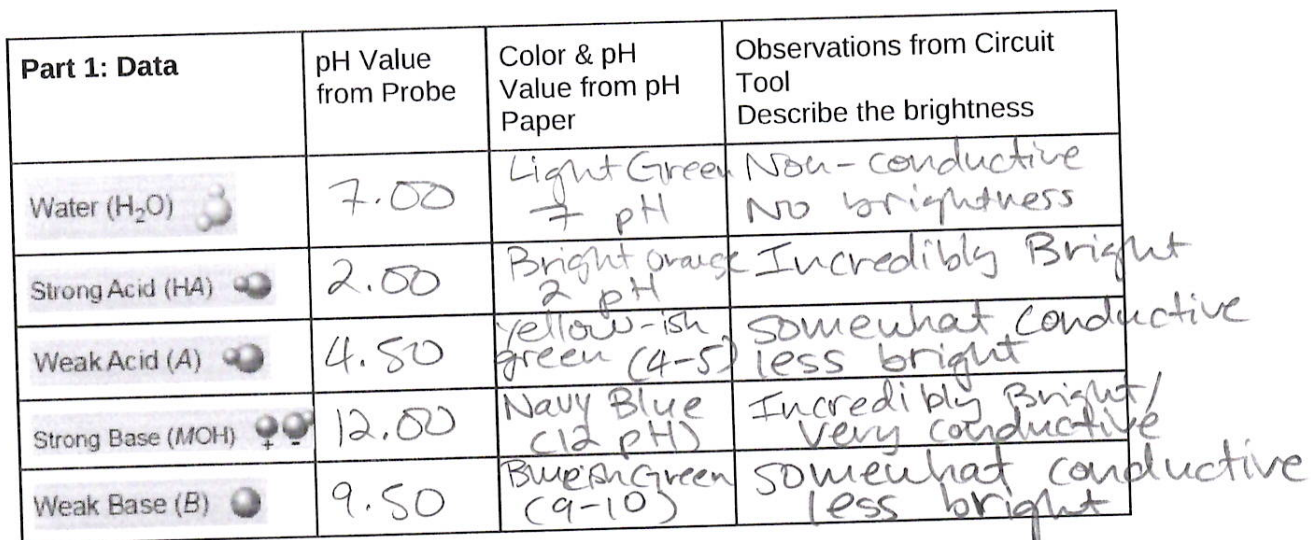 Part 1: Data
pH Value
from Probe
Color & pH
Value from pH
Paper
Observations from Circuit
Tool
Describe the brightness
Water (H₂O)
7.00
Light Green
7 pH
Non-conductive
No brightness
Strong Acid (HA)
2.00
Bright orange
2 pH
Incredibly Bright
Weak Acid (A)
4.50
yellow-ish
green (4-5)
somewhat conductive
less bright
Strong Base (MOH)
12.00
Navy Blue
(12 pH)
Incredibly Bright/
very conductive
Weak Base (B)
9.50
Blueish Green
(9-10)
somewhat conductive
less bright